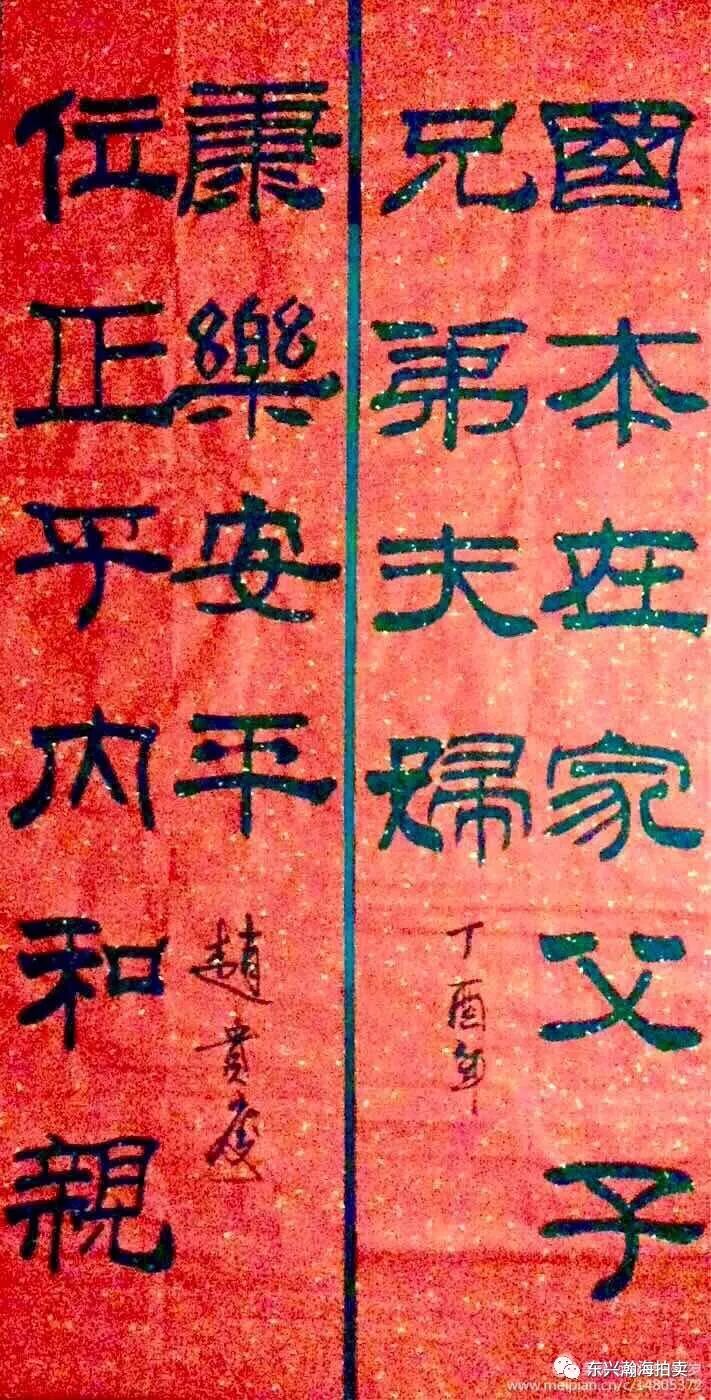 國本在家父子
兄弟夫婦
丁酉年
位正乎内和親
康樂安平
趙貴慶
东兴瀚海拍卖
www.meipian.cn/c/14805372